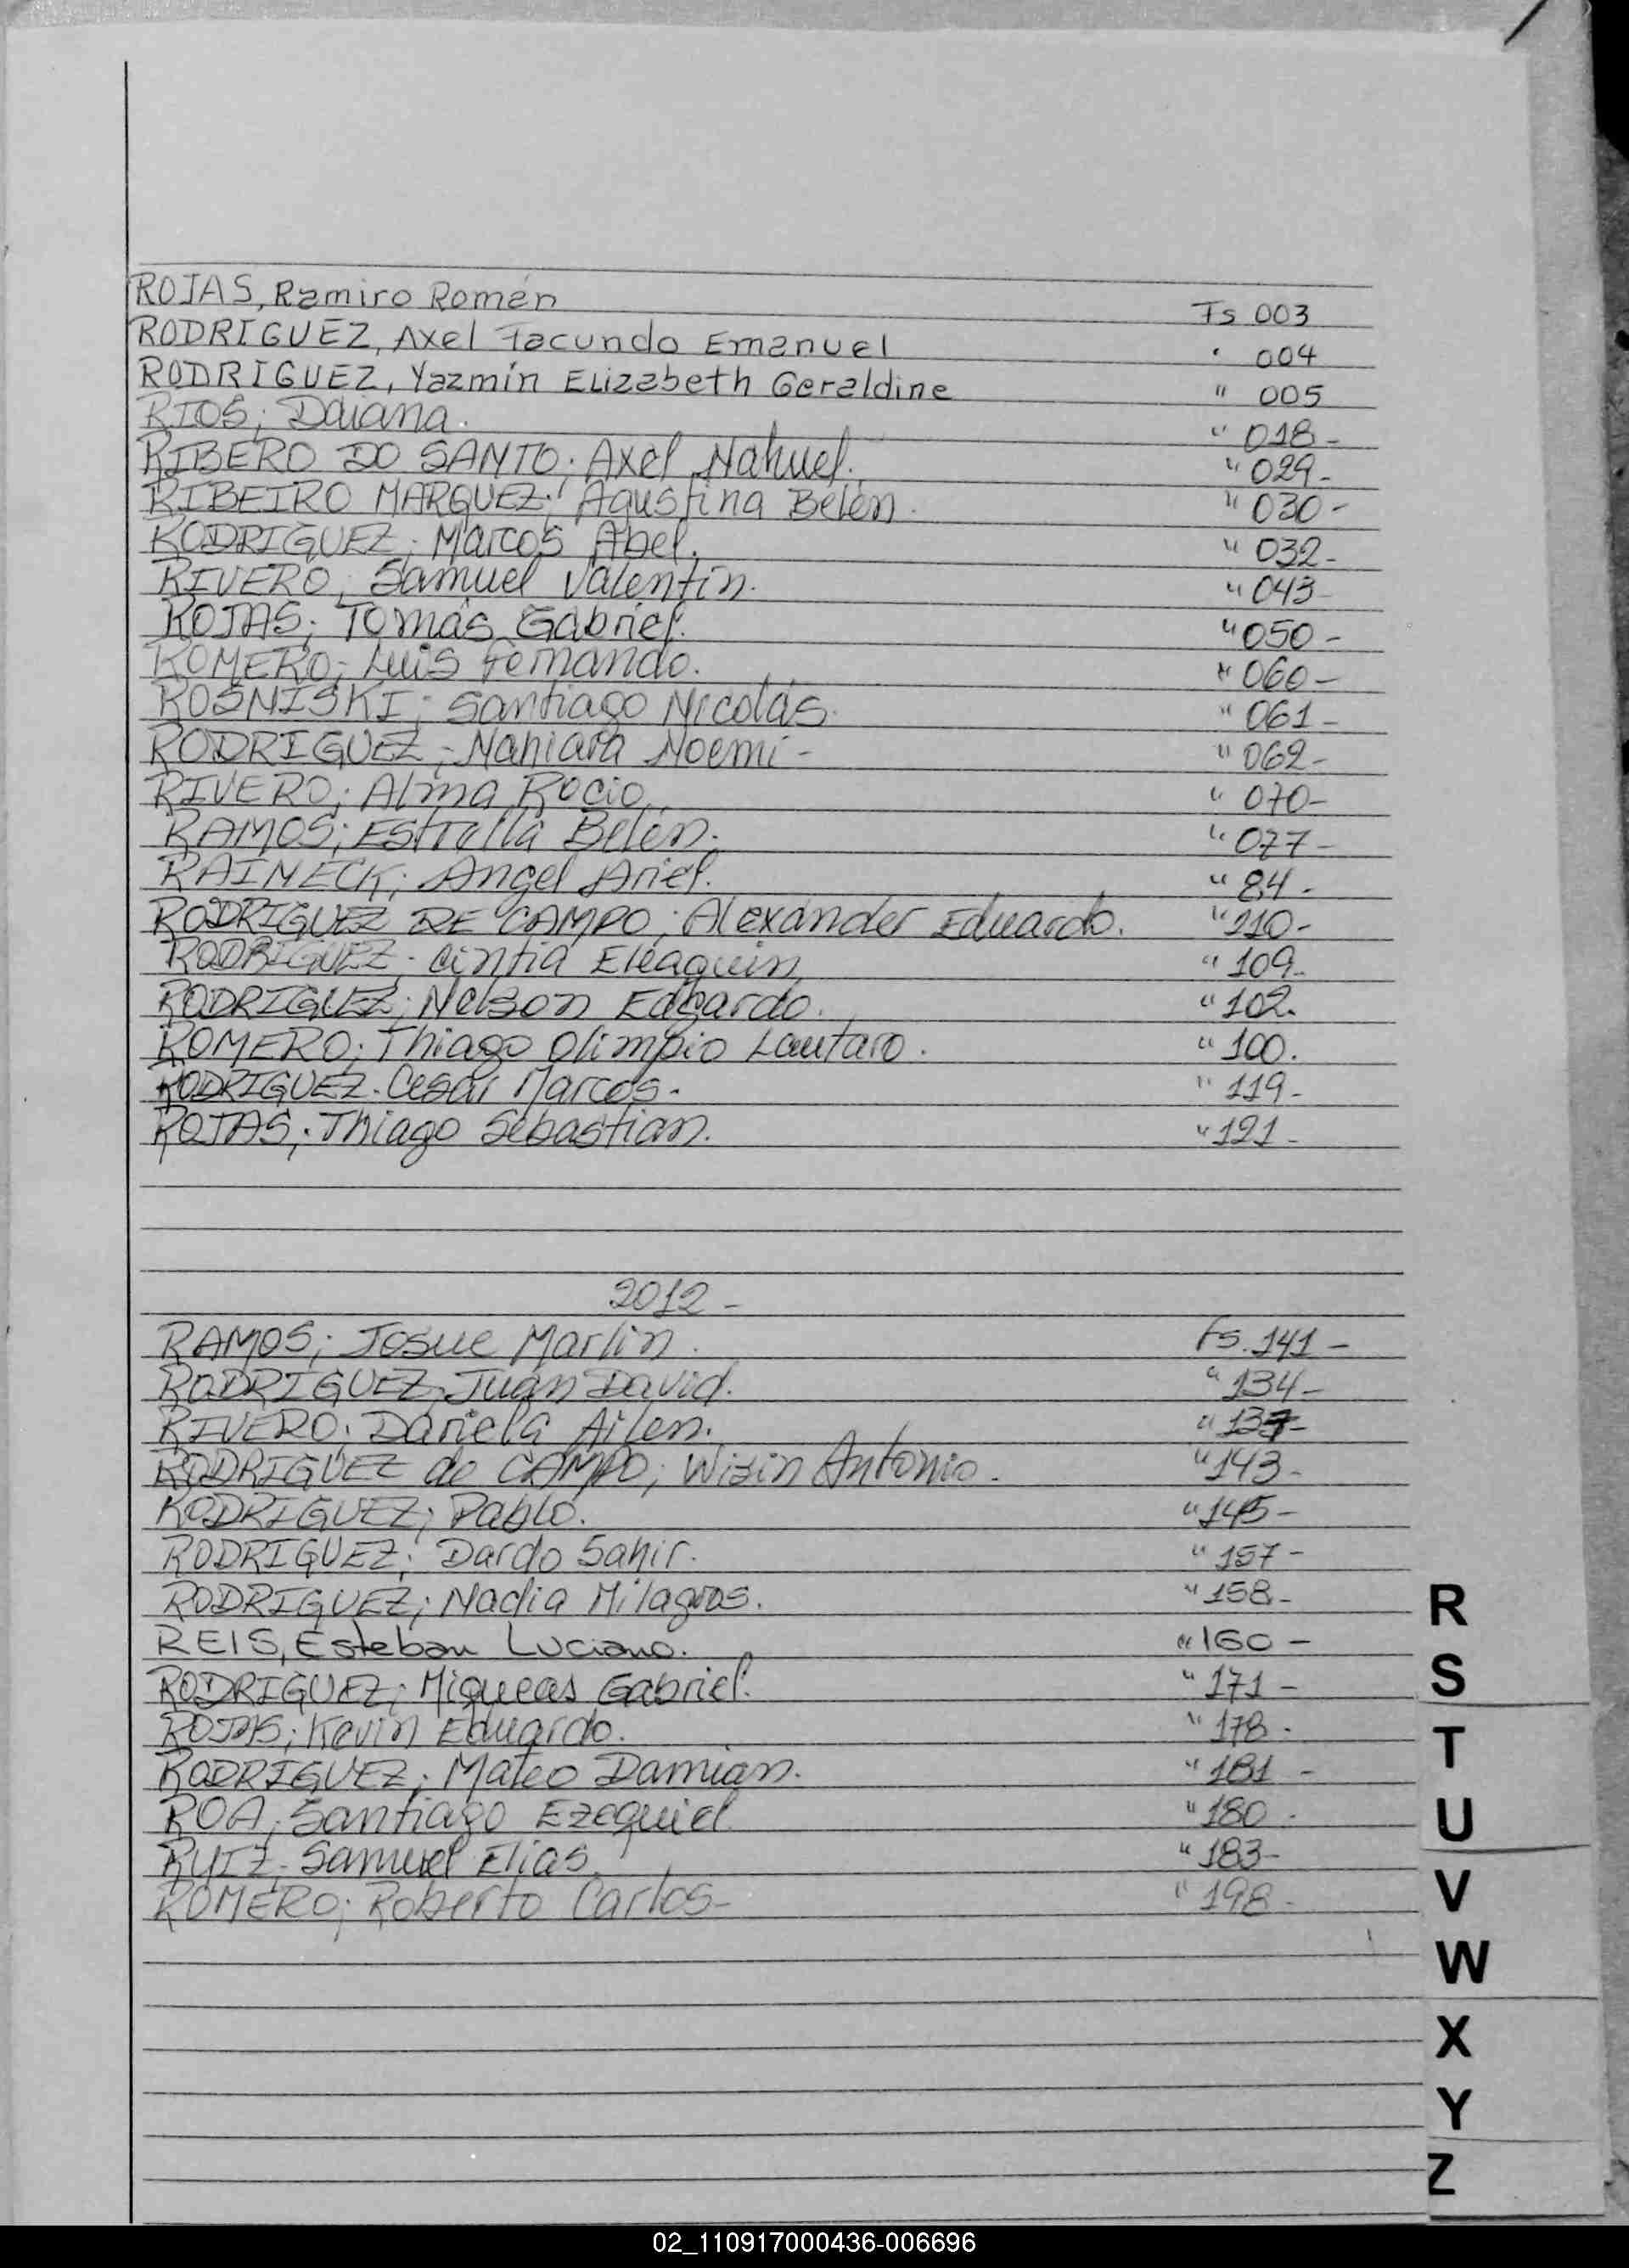 ROJAS, Ramiro Román Fs 003
RODRIGUEZ, Axel Facundo Emanuel " 004
RODRIGUEZ, Yazmín Elizabeth Geraldine " 005
RIOS; Daiana. " 018-
RIBERO DO SANTO; Axel Nahuel. " 029-
RIBEIRO MARQUEZ; Agustina Belén. " 030-
RODRIGUEZ; Marcos Abel. " 032-
RIVERO; Samuel Valentín. " 043-
ROJAS; Tomás Gabriel. " 050-
ROMERO; Luis Fernando. " 060-
ROSNISKI; Santiago Nicolás. " 061-
RODRIGUEZ; Nahiara Noemí- " 062-
RIVERO; Alma Rocio. " 070-
RAMOS; Estrella Belén. " 077-
RAINECK; Angel Ariel. " 84-
RODRIGUEZ DE CAMPO; Alexánder Eduardo. " 110-
RODRIGUEZ; Cintia Eleaquin " 109-
RODRIGUEZ; Nelson Edgardo. " 102.
ROMERO; Thiago Olimpio Lautaro. " 100.
RODRIGUEZ. Cesar Marcos. " 119-
ROJAS; Thiago Sebastian. " 121-
2012-
RAMOS; Josue Martin. Fs. 141-
RODRIGUEZ; Juan David. " 134-
RIVERO; Daniela Ailen. " 137-
RODRIGUEZ de CAMPO; Wisin Antonio. " 143-
RODRIGUEZ; Pablo. " 145-
RODRIGUEZ; Dardo Sahir. " 157-
RODRIGUEZ; Nadia Milagros. " 158-
REIS, Esteban Luciano. " 160-
RODRIGUEZ; Miqueas Gabriel. " 171-
ROJAS; Kevin Eduardo. " 178-
RODRIGUEZ; Mateo Damian. " 181-
ROA; Santiago Ezequiel. " 180-
RUIZ; Samuel Elias. " 183-
ROMERO; Roberto Carlos- " 198-
R
S
T
U
V
W
X
Y
Z
02_110917000436-006696